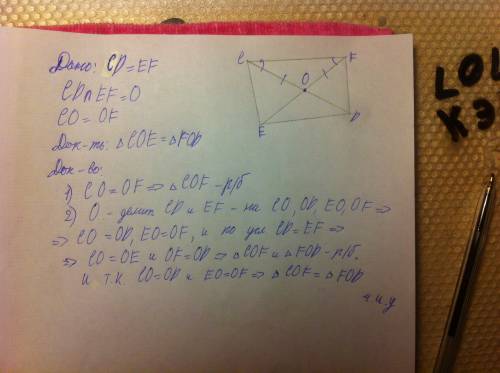 Дано: CD=EF
CD∩EF=O
CO=OF
Док-ть: △COE=△FOD
Док-во:
1) CO=OF⇒△COF-р/б
2) O-делит CD и EF-на CO,OD,EO,OF⇒
⇒ CO=OD, EO=OF, и по усл CD=EF⇒
⇒ CO=OE и OF=OD⇒△COF и △FOD-р/б.
и т.к. CO=OD и EO=OF⇒△COF=△FOD
ч.и.д
C
F
O
E
D
LOL
КЭ